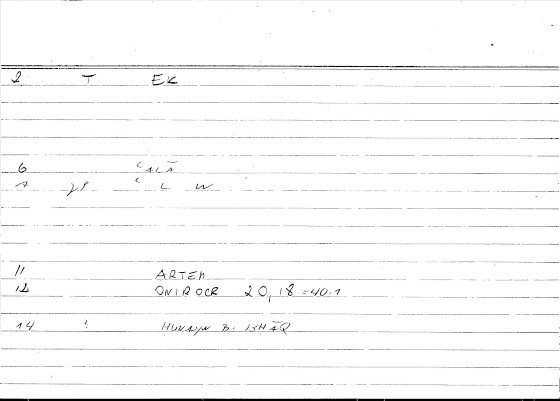 2 T EK
6 ʿALĀ
7 ʿ L W
11 ARTEM
12 ONIROCR 20,18=40.1
14 : HUNAYN B. ISHĀQ